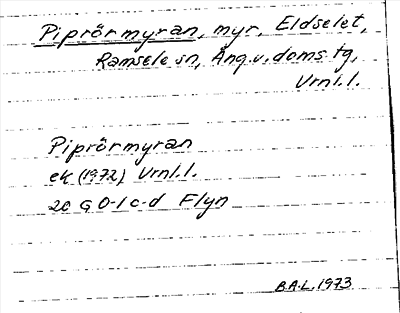 Piprörmyran, myr, Eldselet,
Ramsele sn, Ång.v. doms.tg,
Vrnl.l.
Piprörmyran
ek (1972) Vrnl.l.
20 G 0-1 c-d Flyn
B.A.L. 1973